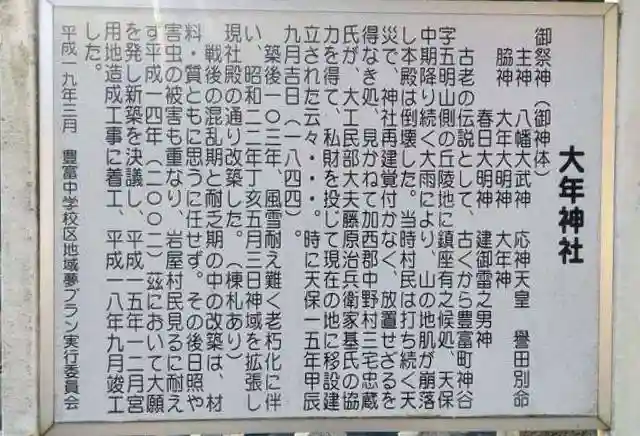 大年神社
御祭神（御神体）
主神　八幡大武神　応神天皇　誉田別命
脇神　大年大明神　大年神
春日大明神　建御雷之男神
古老の伝説として、古くから豊富町神谷
字五明山側の丘陵地に鎮座有之候処、天保
中期降り続く大雨により、山の地肌が崩落
し本殿は倒壊した。当時村民は打ち続く天
災で、神社再建覚付かなく、放置せざるを
得なき処、見かねて加西郡中野村三宅忠蔵
氏が、大工民部大夫藤原治兵衛家基氏の協
力を得て、私財を投じて現在の地に移設建
立された云々・・・。時に天保一五年甲辰
九月吉日（一八四四）。
築後一〇三年、風雪耐え難く老朽化に伴
い、昭和二二年丁亥五月三日神域を拡張し
現社殿の通り改築した。（棟札あり）
戦後の混乱期と耐乏期の中の改築は、材
料・質ともに思うに任せず。その後日照や
害虫の被害も重なり、岩屋村民見るに耐え
ず平成一四年（二〇〇二）茲において大願
を発し新築を決議し、平成一五年一二月宮
用地造成工事に着工、平成一八年九月竣工
した。
平成一九年三月　豊富中学校区地域夢プラン実行委員会